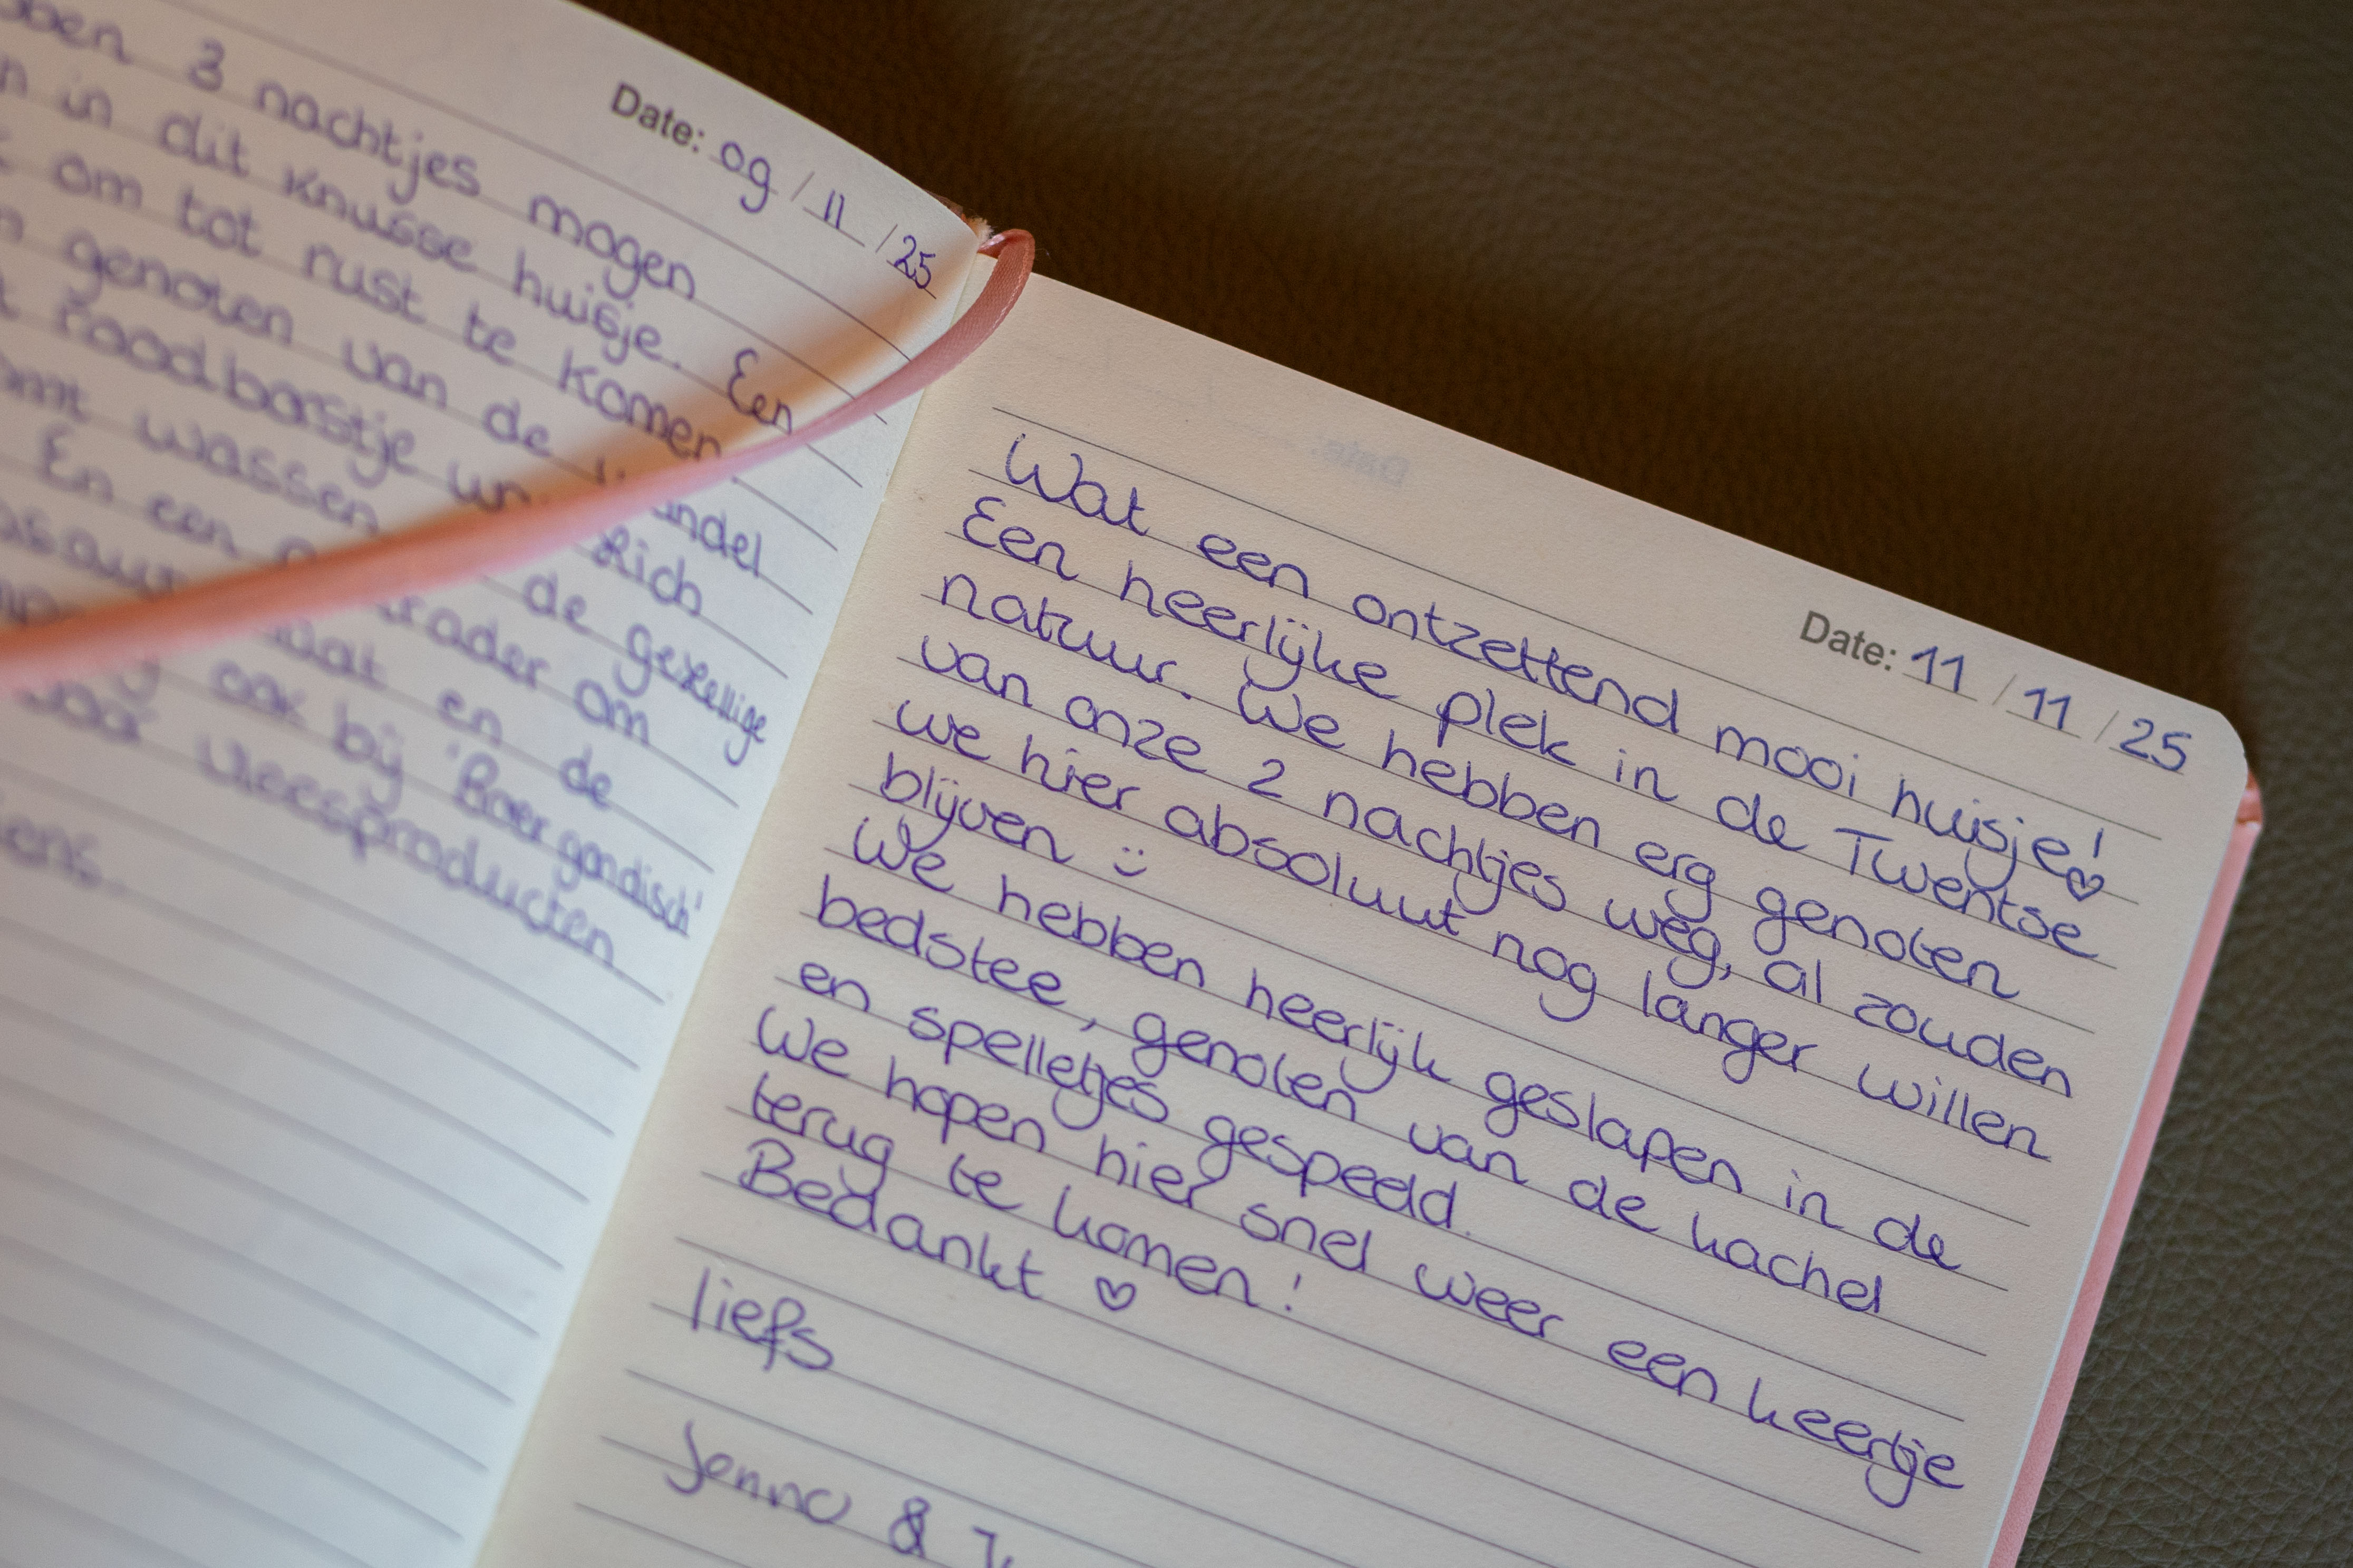 Date: 09/11/25
3 nachtjes mogen
in dit knusse huisje. Een
om tot rust te komen
genoten van de
roodborstje
wassen Rich
En een de gezellige
om
en de
ook bij 'Boergondisch'
vleesproducten
Date: 11/11/25
Wat een ontzettend mooi huisje! ♡
Een heerlijke plek in de Twentse
natuur. We hebben erg genoten
van onze 2 nachtjes weg, al zouden
we hier absoluut nog langer willen
blijven :)
We hebben heerlijk geslapen in de
bedstee, genoten van de kachel
en spelletjes gespeeld.
We hopen hier snel weer een keertje
terug te komen!
Bedankt ♡
liefs
&